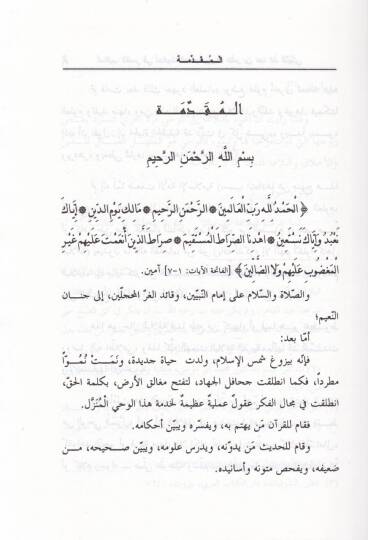 المقدمة
المُقَدِّمَة
بِسْمِ اللَّهِ الرَّحْمَنِ الرَّحِيمِ
﴿ الْحَمْدُ للَّهِ رَبِّ الْعَالَمِينَ * الرَّحْمَنِ الرَّحِيمِ * مَالِكِ يَوْمِ الدِّينِ * إِيَّاكَ
نَعْبُدُ وَإِيَّاكَ نَسْتَعِينُ * اهْدِنَا الصِّرَاطَ الْمُسْتَقِيمَ * صِرَاطَ الَّذِينَ أَنْعَمْتَ عَلَيْهِمْ غَيْرِ
الْمَغْضُوبِ عَلَيْهِمْ وَلاَ الضَّالِّينَ ﴾ [الفاتحة الآيات: ١-٧] آمين.
والصّلاة والسّلام على إمام النبيّين، وقائد الغرّ المحجلّين، إلى جنان
النّعيم؛
أمّا بعد:
فإنّه ببزوغ شمس الإسلام، ولدت حياة جديدة، ونَمَتْ نُمُوّاً
مطرداً، فكما انطلقت جحافل الجهاد، لتفتح مغالق الأرض، بكلمة الحقّ،
انطلقت في مجال الفكر عقولٌ عمليةٌ عظيمةٌ لخدمة هذا الوحي الْمُنَزَّل.
فقام للقرآن مَن يهتم به، ويفسّره ويبيّن أحكامه.
وقام للحديث مَن يدوّنه، ويدرس علومه، ويبيّن صحيحه، مـن
ضعيفه، ويفحص متونه وأسانيده.